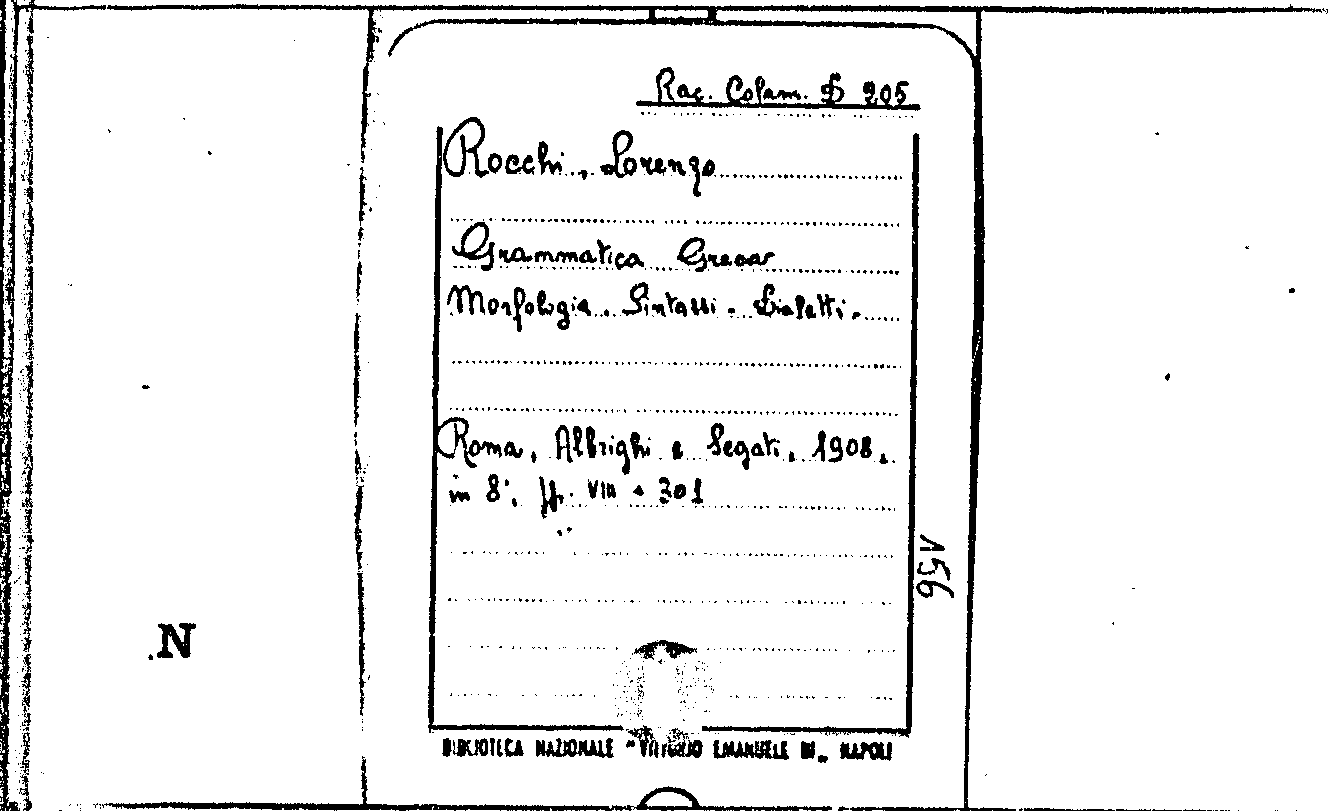 Rac. Colam. D 205
Rocchi, Lorenzo
Grammatica Greca
Morfologia. Sintassi. Dialetti.
Roma, Albrighi e Segati, 1908.
in 8°. pp. VIII + 301
156
N
BIBLIOTECA NAZIONALE "VITTORIO EMANUELE III„ NAPOLI